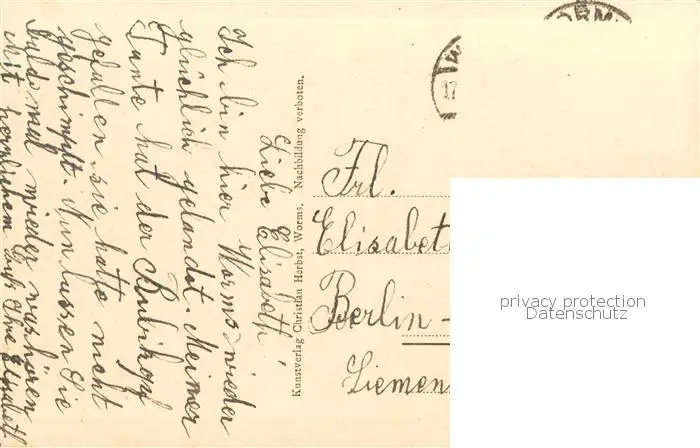 Liebe Elisabeth!
Ich bin hier Worms wieder
glücklich gelandet. Meiner
Tante hat der Bubikopf
gefallen, sie hatte nicht
geschimpft. Nun lassen Sie
bald mal wieder was hören
Mit herzlichem Gruß Ihre Elisabeth
Kunstverlag Christian Herbst, Worms. Nachbildung verboten.
Frl.
Elisabeth
Berlin-
Siemens
17
privacy protection
Datenschutz